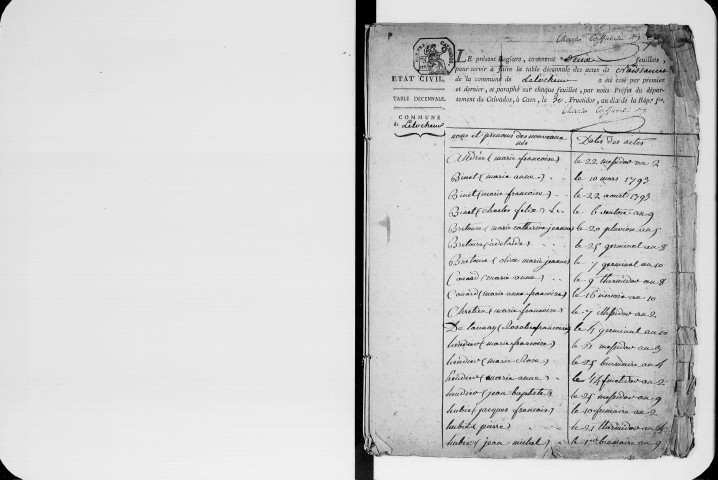 LE présent Registre, contenant deux feuillets,
pour servir à faire la table décennale des actes de Naissances
de la commune de Lelocheur a été coté par premier
et dernier, et paraphé sur chaque feuillet, par nous Préfet du dépar-
tement du Calvados, à Caen, le 30 Fructidor, an dix de la Rép.e fr.
ETAT CIVIL.
TABLE DÉCENNALE.
COMMUNE
de Lelocheur
noms et prenoms des nouveaux nés
Dates des actes
Andrée (marie francoise) le 22 messidor an 2
Binet (marie anne) le 10 mars 1793
Binet (marie francoise) le 22 aout 1793
Binet (charles felix) le 6 ventose an 9
Bretonne (marie catherine jeanne) le 20 pluviose an 5
Bretonne (adelaide) le 25 germinal an 8
Bretonne (olive marie jeanne) le 7 germinal an 10
Couard (marie anne) le 9 thermidor an 8
Couard (marie anne francoise) le 16 nivose an 10
Chretien (marie francoise) le 7 Messidor an 2
De launay (Rosalie francoise) le 4 germinal an 10
heudier (marie francoise) le 21 messidor an 9
heudier (marie Rose) le 25 brumaire an 4
heudier (marie anne) le 14 fructidor an 2
heudier (jean baptiste) le 25 messidor an 9
hubie (jacques francois) le 10 frimaire an 2
hubie (pierre) le 21 thermidor an 4
hubie (jean michel) le 1er brumaire an 9